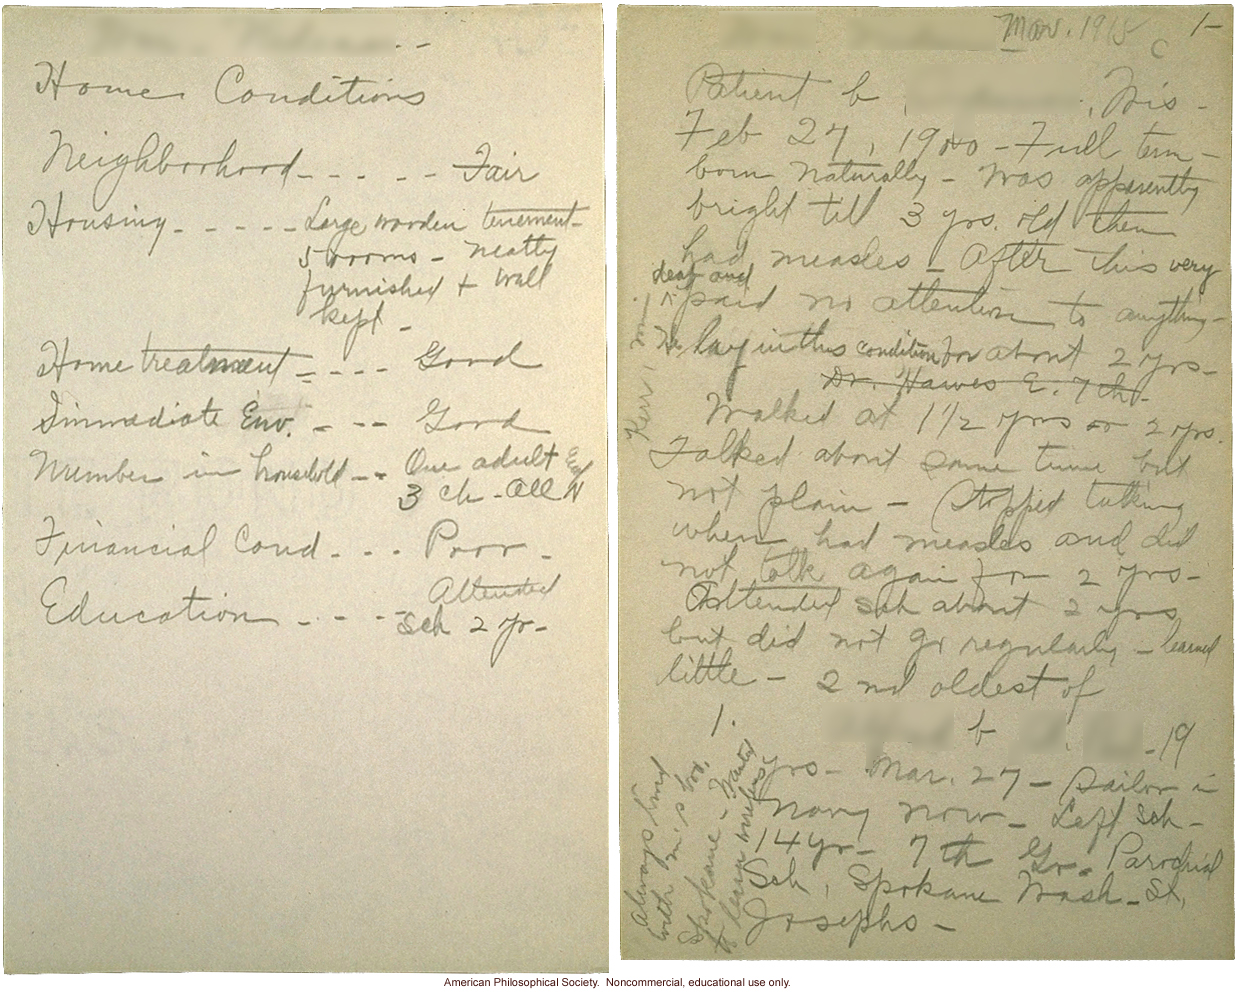 Home Conditions
Neighborhood - - - - - Fair
Housing - - - - - Large wooden tenement -
5 rooms - neatly
furnished + well
kept -
Home treatment - - - - Good
Immediate Env. - - - Good
Number in household - - One adult
3 ch - All
Financial Cond. - - - Poor -
Education - - - - Attended
Sch 2 yr -
Mar. 1918
C
1-
Patient b , Wis -
Feb 27, 1900 - Full term -
born naturally - was apparently
bright till 3 yrs. old then
had measles - After this very
deaf and
paid no attention to anything -
lay in this condition for about 2 yrs -
Dr. Hawes E. 7th -
Walked at 1 1/2 yrs or 2 yrs.
Talked about same time but
not plain - Stopped talking
when had measles and did
not talk again for 2 yrs -
Attended Sch about 2 yrs
but did not go regularly - learned
little - 2nd oldest of
1. b - 19
yrs - Mar. 27 - Sailor in
Navy now - Left Sch -
14 yr - 7th Gr. Parochial
Sch, Spokane Wash - St.
Josephs -
Always lived
with m's bro.
Spokane - Wanted
to learn wireless
American Philosophical Society. Noncommercial, educational use only.